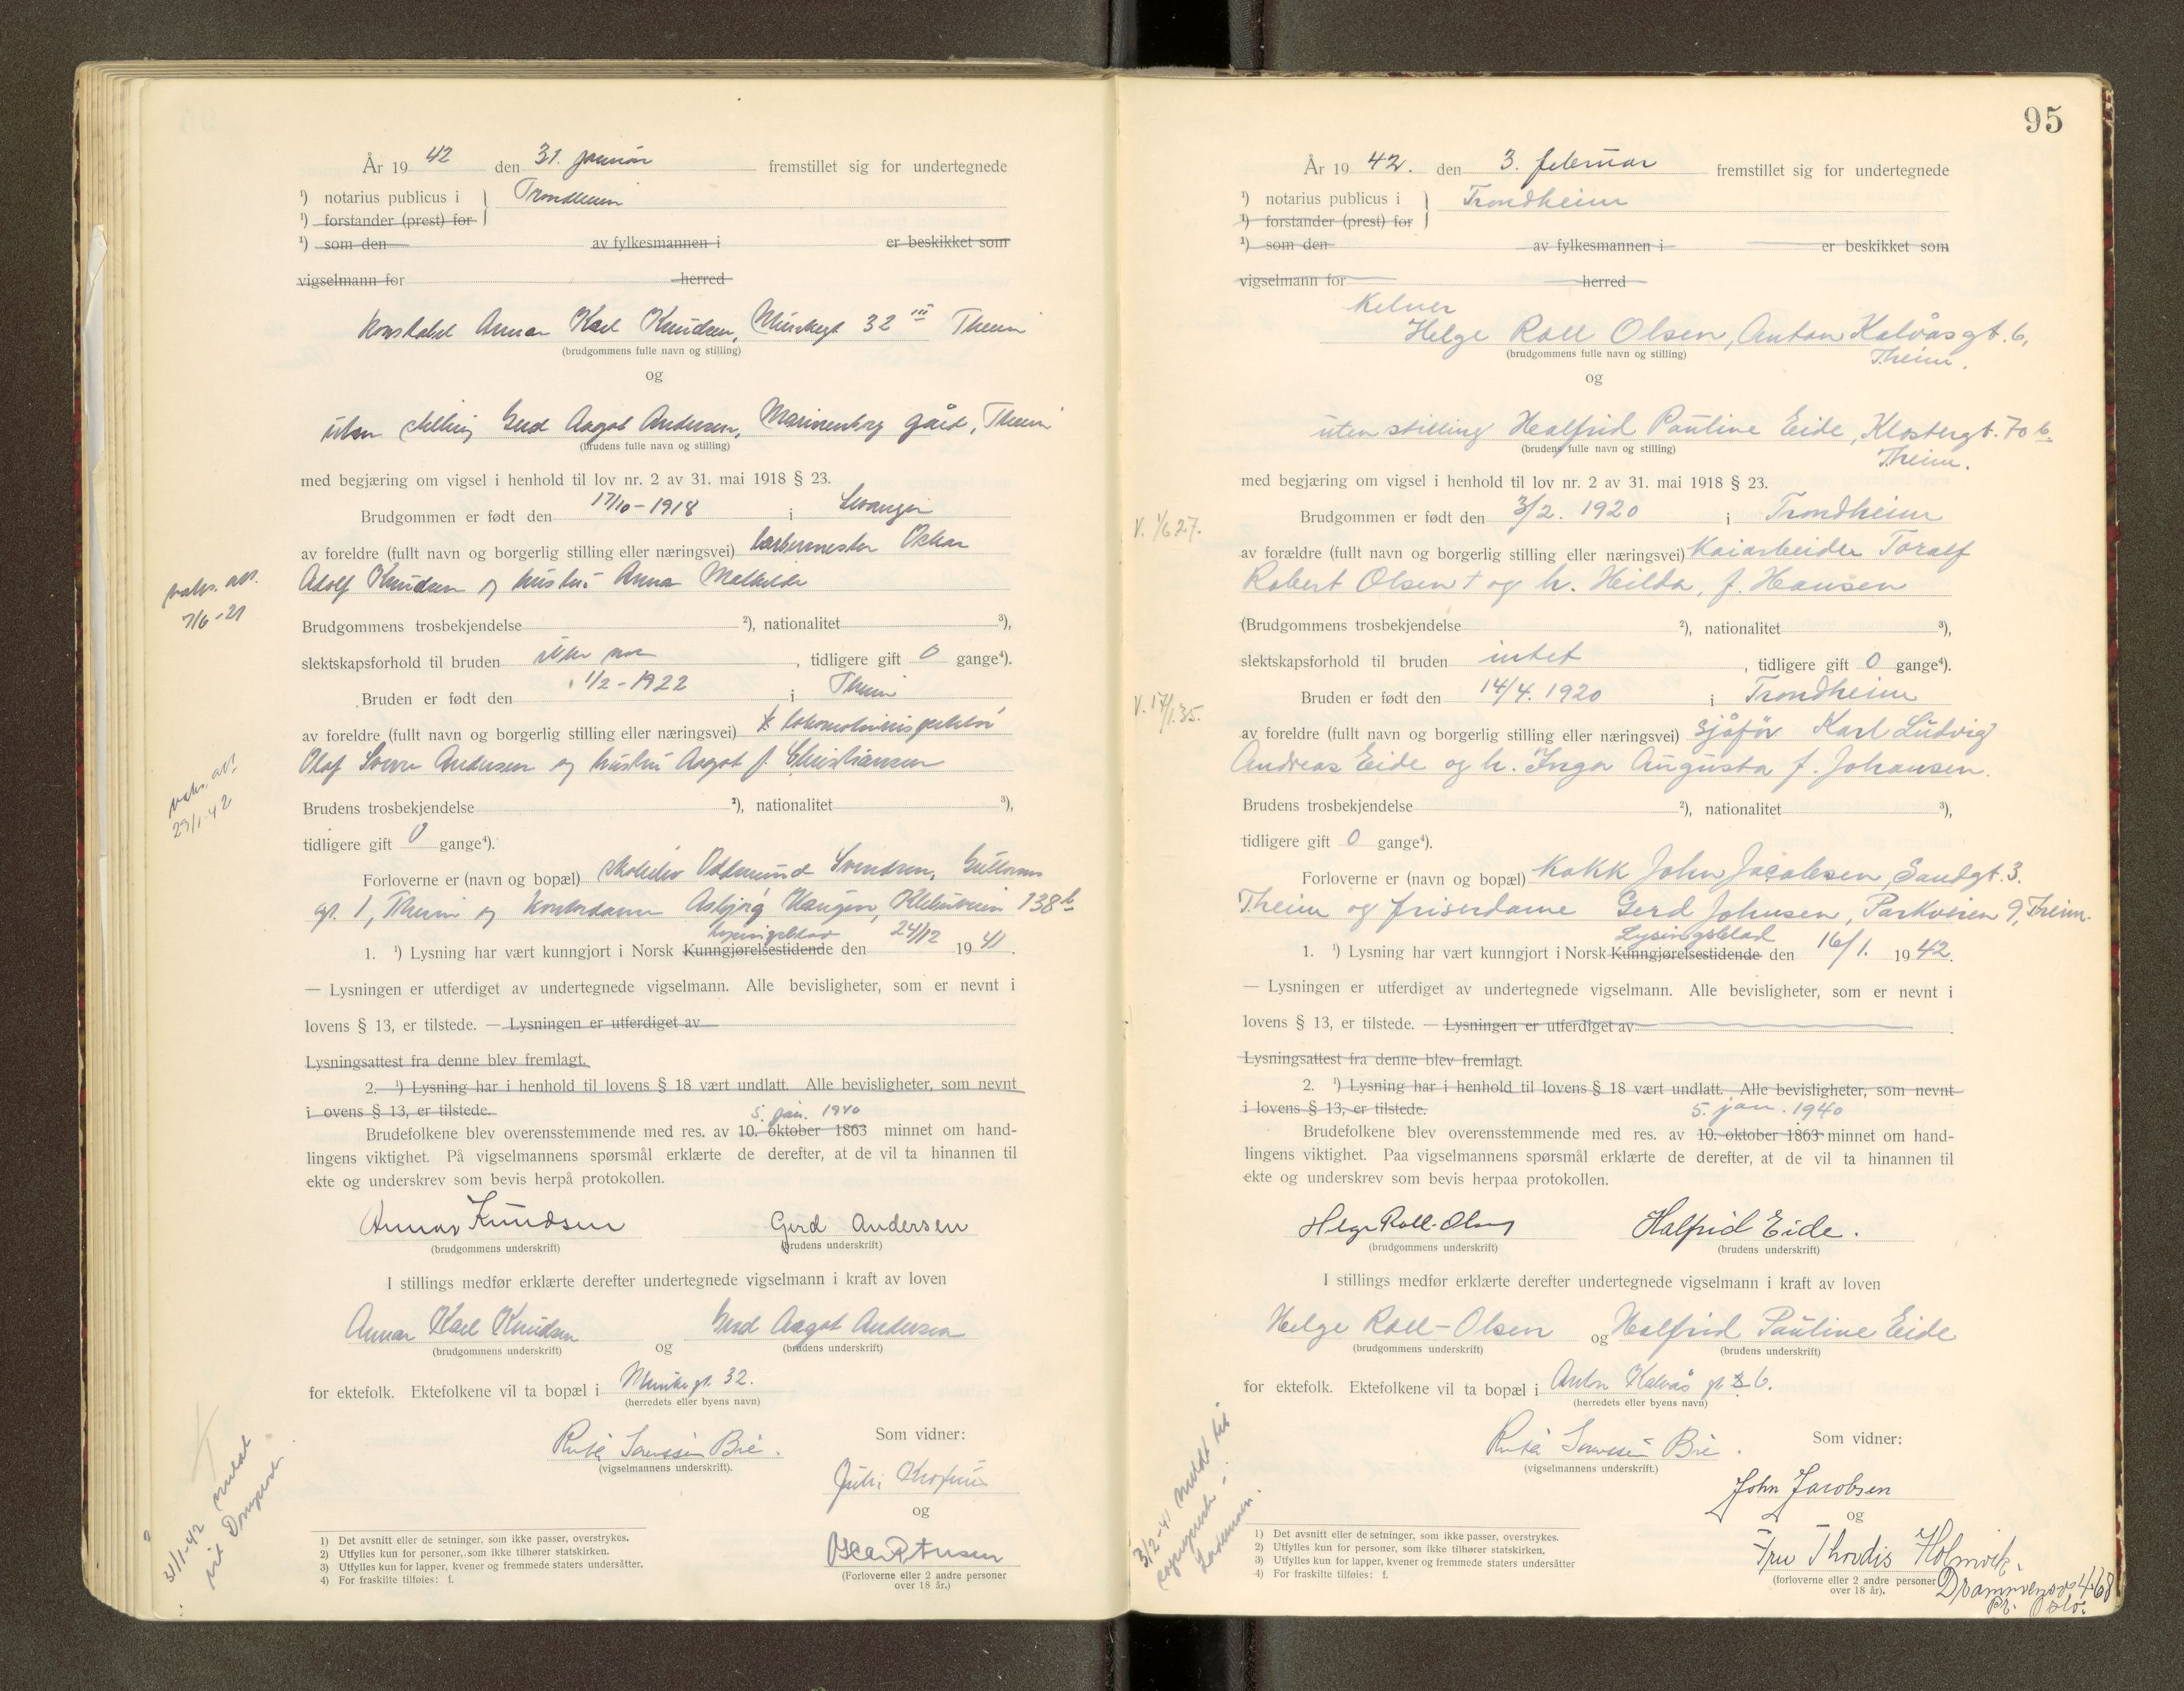 År 19 42 den 31. januar fremstillet sig for undertegnede
¹) notarius publicus i Trondheim
¹) forstander (prest) for
¹) som den av fylkesmannen i er beskikket som
vigselmann for herred
Konstabel Annar Karl Knudsen, 32 III Theim
(brudgommens fulle navn og stilling)
og
uten stilling Gerd Aagot Andersen, Marienborg gård, Theim
(brudens fulle navn og stilling)
med begjæring om vigsel i henhold til lov nr. 2 av 31. mai 1918 § 23.
Brudgommen er født den 17/10-1918 i Levanger
av foreldre (fullt navn og borgerlig stilling eller næringsvei) barbermester Oskar
Adolf Knudsen og hustru Anna Mathilde
vaks. att.
7/6-21
Brudgommens trosbekjendelse ²), nationalitet ³),
slektskapsforhold til bruden , tidligere gift 0 gange⁴).
Bruden er født den 1/2-1922 i Theim
av foreldre (fullt navn og borgerlig stilling eller næringsvei)
Olaf Andersen og hustru Aagot f. Christiansen
vaks. att.
29/1-42
Brudens trosbekjendelse ²), nationalitet ³),
tidligere gift 0 gange⁴).
Forloverne er (navn og bopæl) Oddmund Svendsen, Guttorms
gt. 1, Theim og kontordame Asbjørg Haugen, 138b
1. ¹) Lysning har vært kunngjort i Norsk Kunngjørelsestidende Lysingsblad den 24/12 19 41.
— Lysningen er utferdiget av undertegnede vigselmann. Alle bevisligheter, som er nevnt i
lovens § 13, er tilstede. — Lysningen er utferdiget av
Lysningsattest fra denne blev fremlagt.
2. ¹) Lysning har i henhold til lovens § 18 vært undlatt. Alle bevisligheter, som nevnt
i ovens § 13, er tilstede.
5. jan. 1940
Brudefolkene blev overensstemmende med res. av 10. oktober 1863 minnet om hand-
lingens viktighet. På vigselmannens spørsmål erklærte de derefter, at de vil ta hinannen til
ekte og underskrev som bevis herpå protokollen.
Annar Knudsen Gerd Andersen
(brudgommens underskrift) (brudens underskrift)
I stillings medfør erklærte derefter undertegnede vigselmann i kraft av loven
Annar Karl Knudsen og Gerd Aagot Andersen
(brudgommens underskrift) (brudens underskrift)
for ektefolk. Ektefolkene vil ta bopæl i 32.
(herredets eller byens navn)
Som vidner:
(vigselmannens underskrift).
og
(Forloverne eller 2 andre personer
over 18 år.)
31/1-42 meldt
1) Det avsnitt eller de setninger, som ikke passer, overstrykes.
2) Utfylles kun for personer, som ikke tilhører statskirken.
3) Utfylles kun for lapper, kvener og fremmede staters undersåtter.
4) For fraskilte tilføies: f.
95
År 19 42. den 3. februar fremstillet sig for undertegnede
¹) notarius publicus i Trondheim
¹) forstander (prest) for
¹) som den av fylkesmannen i er beskikket som
vigselmann for herred
Kelner
Helge Roll Olsen, Anton Kalvåsgt. 6,
Theim.
(brudgommens fulle navn og stilling)
og
uten stilling Halfrid Pauline Eide, Klostergt. 70 b.
Theim.
(brudens fulle navn og stilling)
med begjæring om vigsel i henhold til lov nr. 2 av 31. mai 1918 § 23.
Brudgommen er født den 3/2. 1920 i Trondheim
V. 1/6 27.
av forældre (fullt navn og borgerlig stilling eller næringsvei) Kaiarbeider Toralf
Robert Olsen † og h. Hilda, f. Hansen
(Brudgommens trosbekjendelse ²), nationalitet ³),
slektskapsforhold til bruden intet , tidligere gift 0 gange⁴).
Bruden er født den 14/4. 1920 i Trondheim
V. 17/1.35.
av foreldre (fullt navn og borgerlig stilling eller næringsvei) sjåfør Karl Ludvig
Andreas Eide og h. Inga Augusta f. Johansen.
Brudens trosbekjendelse ²), nationalitet ³),
tidligere gift 0 gange⁴).
Forloverne er (navn og bopæl) Kokk John Jacobsen, Sandgt. 3.
Theim og friserdame Gerd Johnsen, Parkveien 9, Theim.
1. ¹) Lysning har vært kunngjort i Norsk Kunngjørelsestidende Lysingsblad den 16/1. 19 42.
— Lysningen er utferdiget av undertegnede vigselmann. Alle bevisligheter, som er nevnt i
lovens § 13, er tilstede. — Lysningen er utferdiget av
Lysningsattest fra denne blev fremlagt.
2. ¹) Lysning har i henhold til lovens § 18 vært undlatt. Alle bevisligheter, som nevnt
i lovens § 13, er tilstede.
5. jan. 1940
Brudefolkene blev overensstemmende med res. av 10. oktober 1863 minnet om hand-
lingens viktighet. Paa vigselmannens spørsmål erklærte de derefter, at de vil ta hinannen til
ekte og underskrev som bevis herpaa protokollen.
Helge Roll-Olsen Halfrid Eide.
(brudgommens underskrift) (brudens underskrift)
I stillings medfør erklærte derefter undertegnede vigselmann i kraft av loven
Helge Roll-Olsen og Halfrid Pauline Eide
(brudgommens underskrift) (brudens underskrift)
for ektefolk. Ektefolkene vil ta bopæl i Anton Kalvås gt. 6.
(herredets eller byens navn)
Som vidner:
(vigselmannens underskrift.)
John Jacobsen
og
Fru Thordis Holmvik
(forloverne eller 2 andre personer
over 18 år).
Drammensvg 468
Pr. Oslo.
3/2-41 meldt til
sogneprest i
Lademoen.
1) Det avsnitt eller de setninger, som ikke passer, overstrykes.
2) Utfylles kun for personer, som ikke tilhører statskirken.
3) Utfylles kun for lapper, kvener og fremmede staters undersåtter
4) For fraskilte tilføies: f.